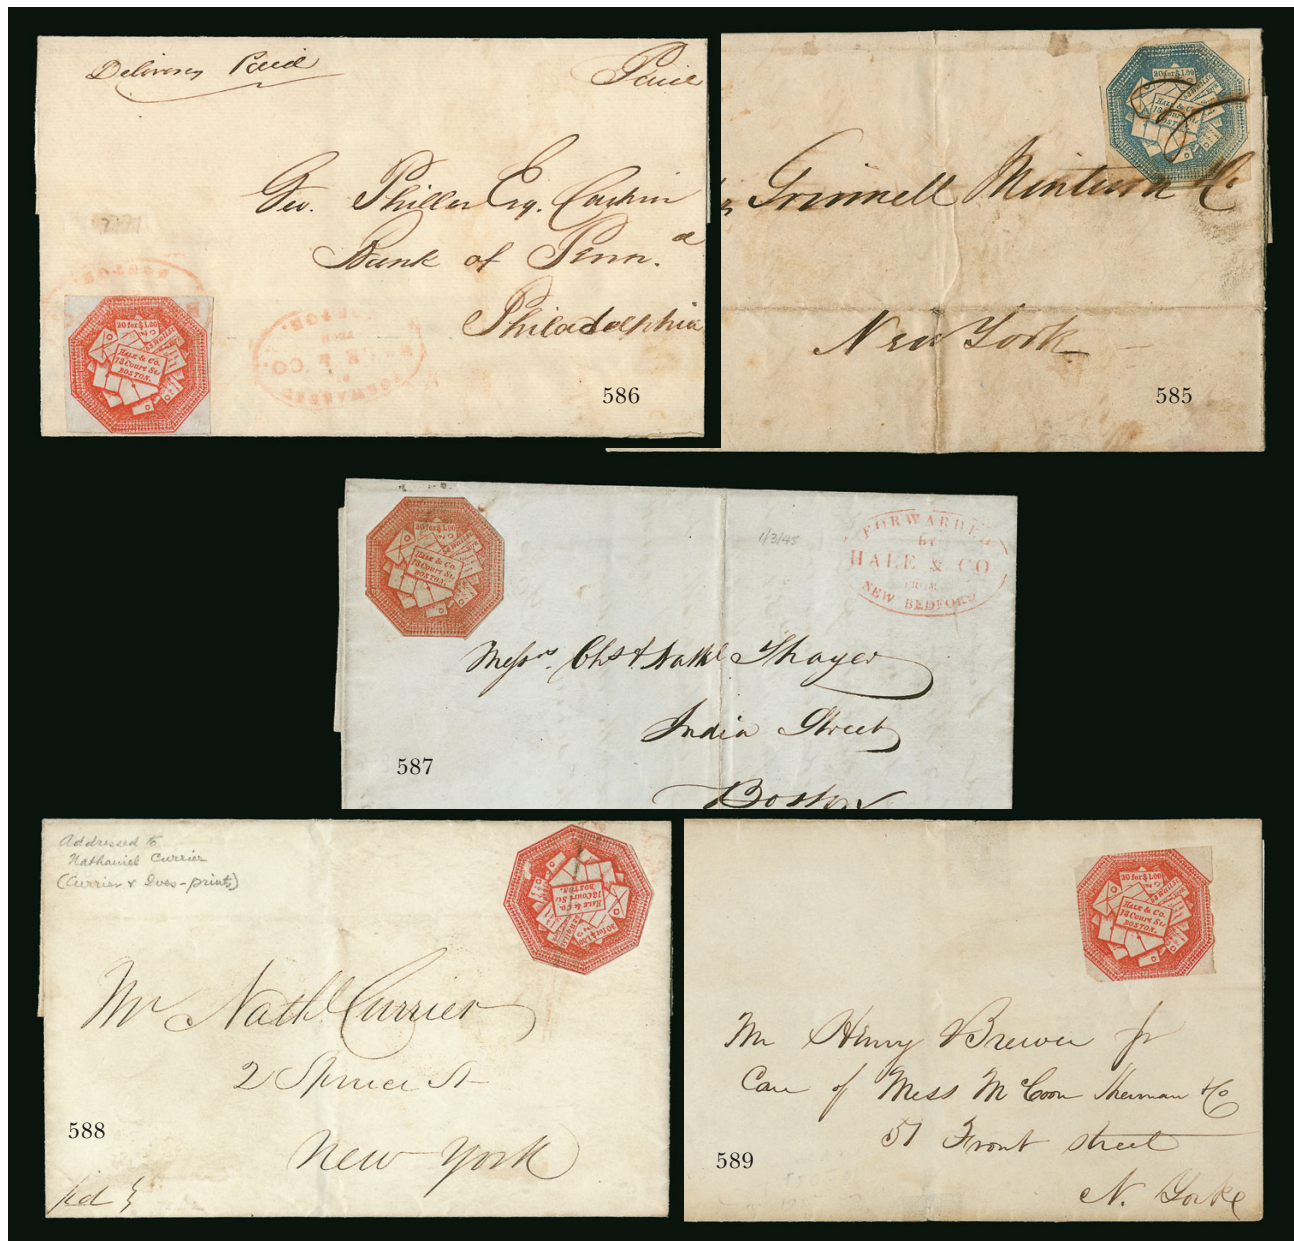 Delivery Paid
Paid
Geo. Philler Esq. Cashier
Bank of Penn.a
Philadelphia
20 for $1.00
HALE & Co.
13 Court St,
BOSTON.
FORWARDED
HALE & CO.
BOSTON.
586
20 for $1.00
HALE & Co.
13 Court St,
BOSTON.
Grinnell Minturn & Co
New York
585
20 for $1.00
HALE & Co.
13 Court St,
BOSTON.
1/3/45
FORWARDED
by
HALE & CO
FROM
NEW BEDFORD
Messrs. Chs & Nathl Thayer
India Street
Boston
587
Addressed to
Nathaniel Currier
(Currier & Ives-prints)
20 for $1.00
HALE & Co.
13 Court St,
BOSTON.
Mr Nathl Currier
2 Spruce St
New York
588
pd
20 for $1.00
HALE & Co.
13 Court St,
BOSTON.
Mr Henry Brewer Jr
Care of Mess McCoon Sherman & Co
51 Front street
N. Yorke
589